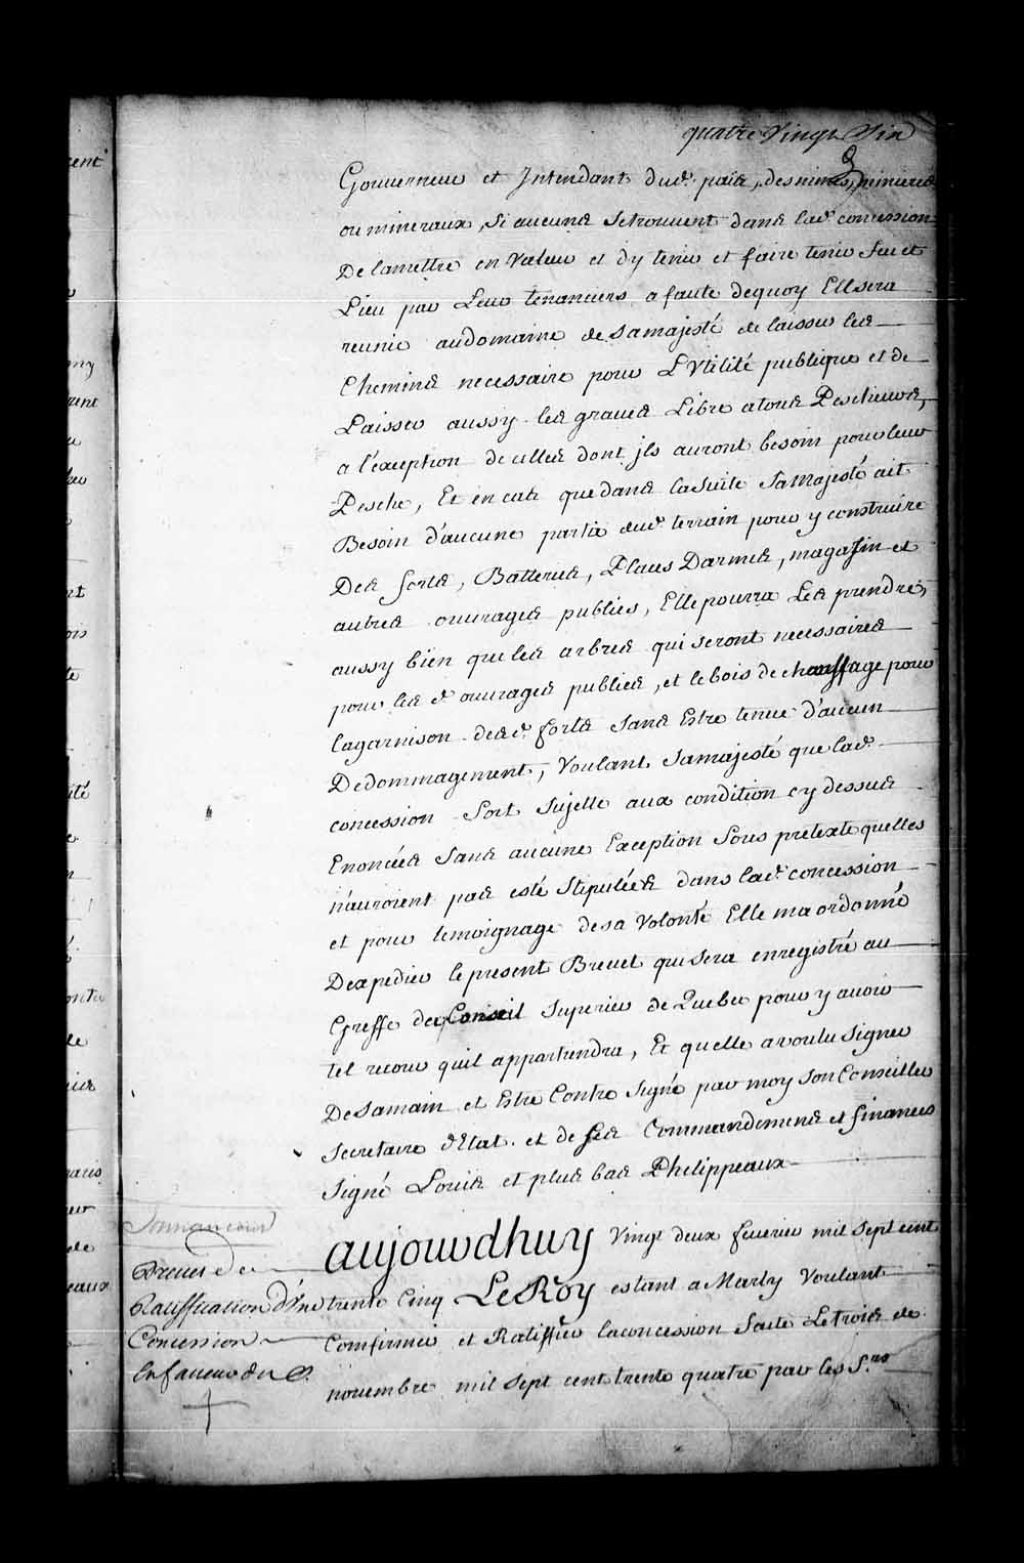 quatre Vingt Six
Gouverneur et Intendant dud. païs, des mines, minieres
ou mineraux, Si aucuns Setrouvent dans lad. concession
De lamettre en Valeur et d'y tenir et faire tenir Feu et
Lieu par Leurs tenanciers a faute dequoy Ellsera
reunie audomaine de Samajesté de laisser les
Chemins necessaire pour L'Vtilité publique et de
Laisser aussy les graves Libre atous Pescheurs,
a l'exception de celles dont jls auront besoin pour leur
Pesche, Et en cas que dans laSuite SaMajesté ait
Besoin d'aucune partie dud. terrain pour y construire
Des forts, Batteries, Places Darmes, magasin et
autres ouvrages publics, Elle pourra Les prendre,
aussy bien que les arbres qui seront necessaires
pour les d. ouvrages publics, et lebois de chauffage pour
lagarnison desd. forts Sans Estre tenue d'aucun
Dedommagement, Voulant Samajesté que lad.
concession Soit Sujette aux condition cy dessus
Enoncées Sans aucune Exception Sous pretexte quelles
n'auroient pas esté Stipulées dans lad. concession
et pour temoignage desa Volonté Elle ma ordonné
Dexpedier lepresent Brevet qui sera enregistré au
Greffe du Conseil Superieur de Quebec pour y avoir
tel recour quil appartiendra, Et quelle a voulu Signer
DeSamain et Estre Contre Signé par moy Son Conseiller
Secretaire d'Etat et de Ses Commandemens et finances
Signé Louis et plus bas Philippeaux
Aujourdhuy Vingt deux fevrier mil Sept cent
trente Cinq LeRoy estant a Marly Voulant
Comfirmer et Ratiffier laconcession faite Le trois de
novembre mil Sept cent trente quatre par les Srs
Brevet de
Ratiffication d'Une
Concession
En faveur du S.